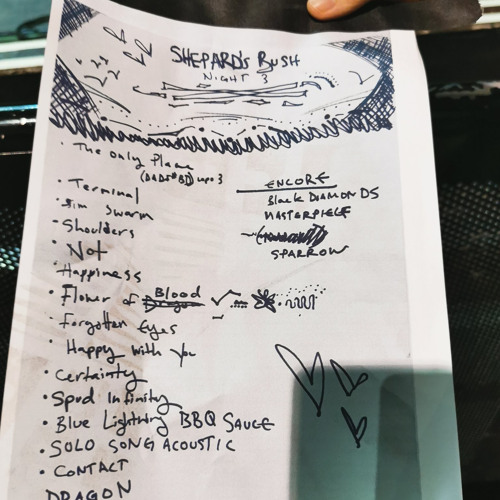 SHEPARD'S BUSH
NIGHT 3
• The Only Place
(DADF#BD) capo 3
• Terminal
• Sim Swarm
• Shoulders
• Not
• Happiness
• Flower of Blood
• Forgotten Eyes
• Happy with you
• Certainty
• Spud Infinity
• Blue Lightning BBQ SAUCE
• SOLO SONG ACOUSTIC
• CONTACT
DRAGON
ENCORE
Black DIAMONDS
MASTERPIECE
SPARROW